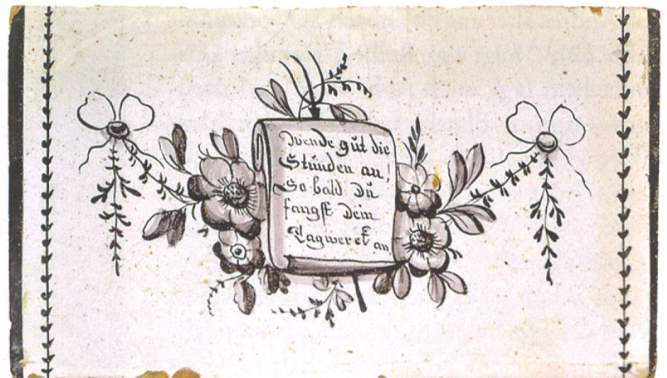 Wende güt die
Stünden an!
So bald dü
fangst dein
Tagwerck an